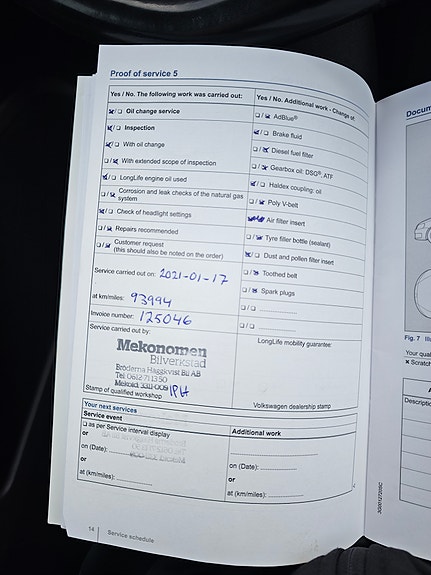 Proof of service 5
Yes / No. The following work was carried out:
Oil change service
Inspection
With oil change
With extended scope of inspection
LongLife engine oil used
Corrosion and leak checks of the natural gas
system
Check of headlight settings
Repairs recommended
Customer request
(this should also be noted on the order)
Service carried out on: 2021-01-17
at km/miles: 93994
Invoice number: 125046
Service carried out by:
Mekonomen
Bilverkstad
Bröderna Häggkvist Bil AB
Tel: 0612-713 50
Stamp of qualified workshop
Yes / No. Additional work - Change of:
AdBlue®
Brake fluid
Diesel fuel filter
Gearbox oil: DSG®, ATF
Haldex coupling: oil
Poly V-belt
Air filter insert
Tyre filler bottle (sealant)
Dust and pollen filter insert
Toothed belt
Spark plugs
LongLife mobility guarantee:
Volkswagen dealership stamp
Your next services
Service event
as per Service interval display
or
on (Date):
or
at (km/miles):
Additional work
on (Date):
or
at (km/miles):
14
Service schedule
Docum
Fig. 7
Your qual
Scratch
Descriptio